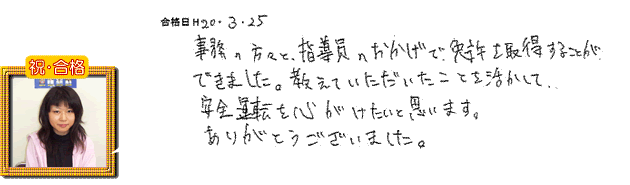 合格日 H20・3・25
事務の方々と、指導員のおかげで、免許を取得することが
できました。教えていただいたことを活かして、
安全運転を心がけたいと思います。
ありがとうございました。
祝・合格